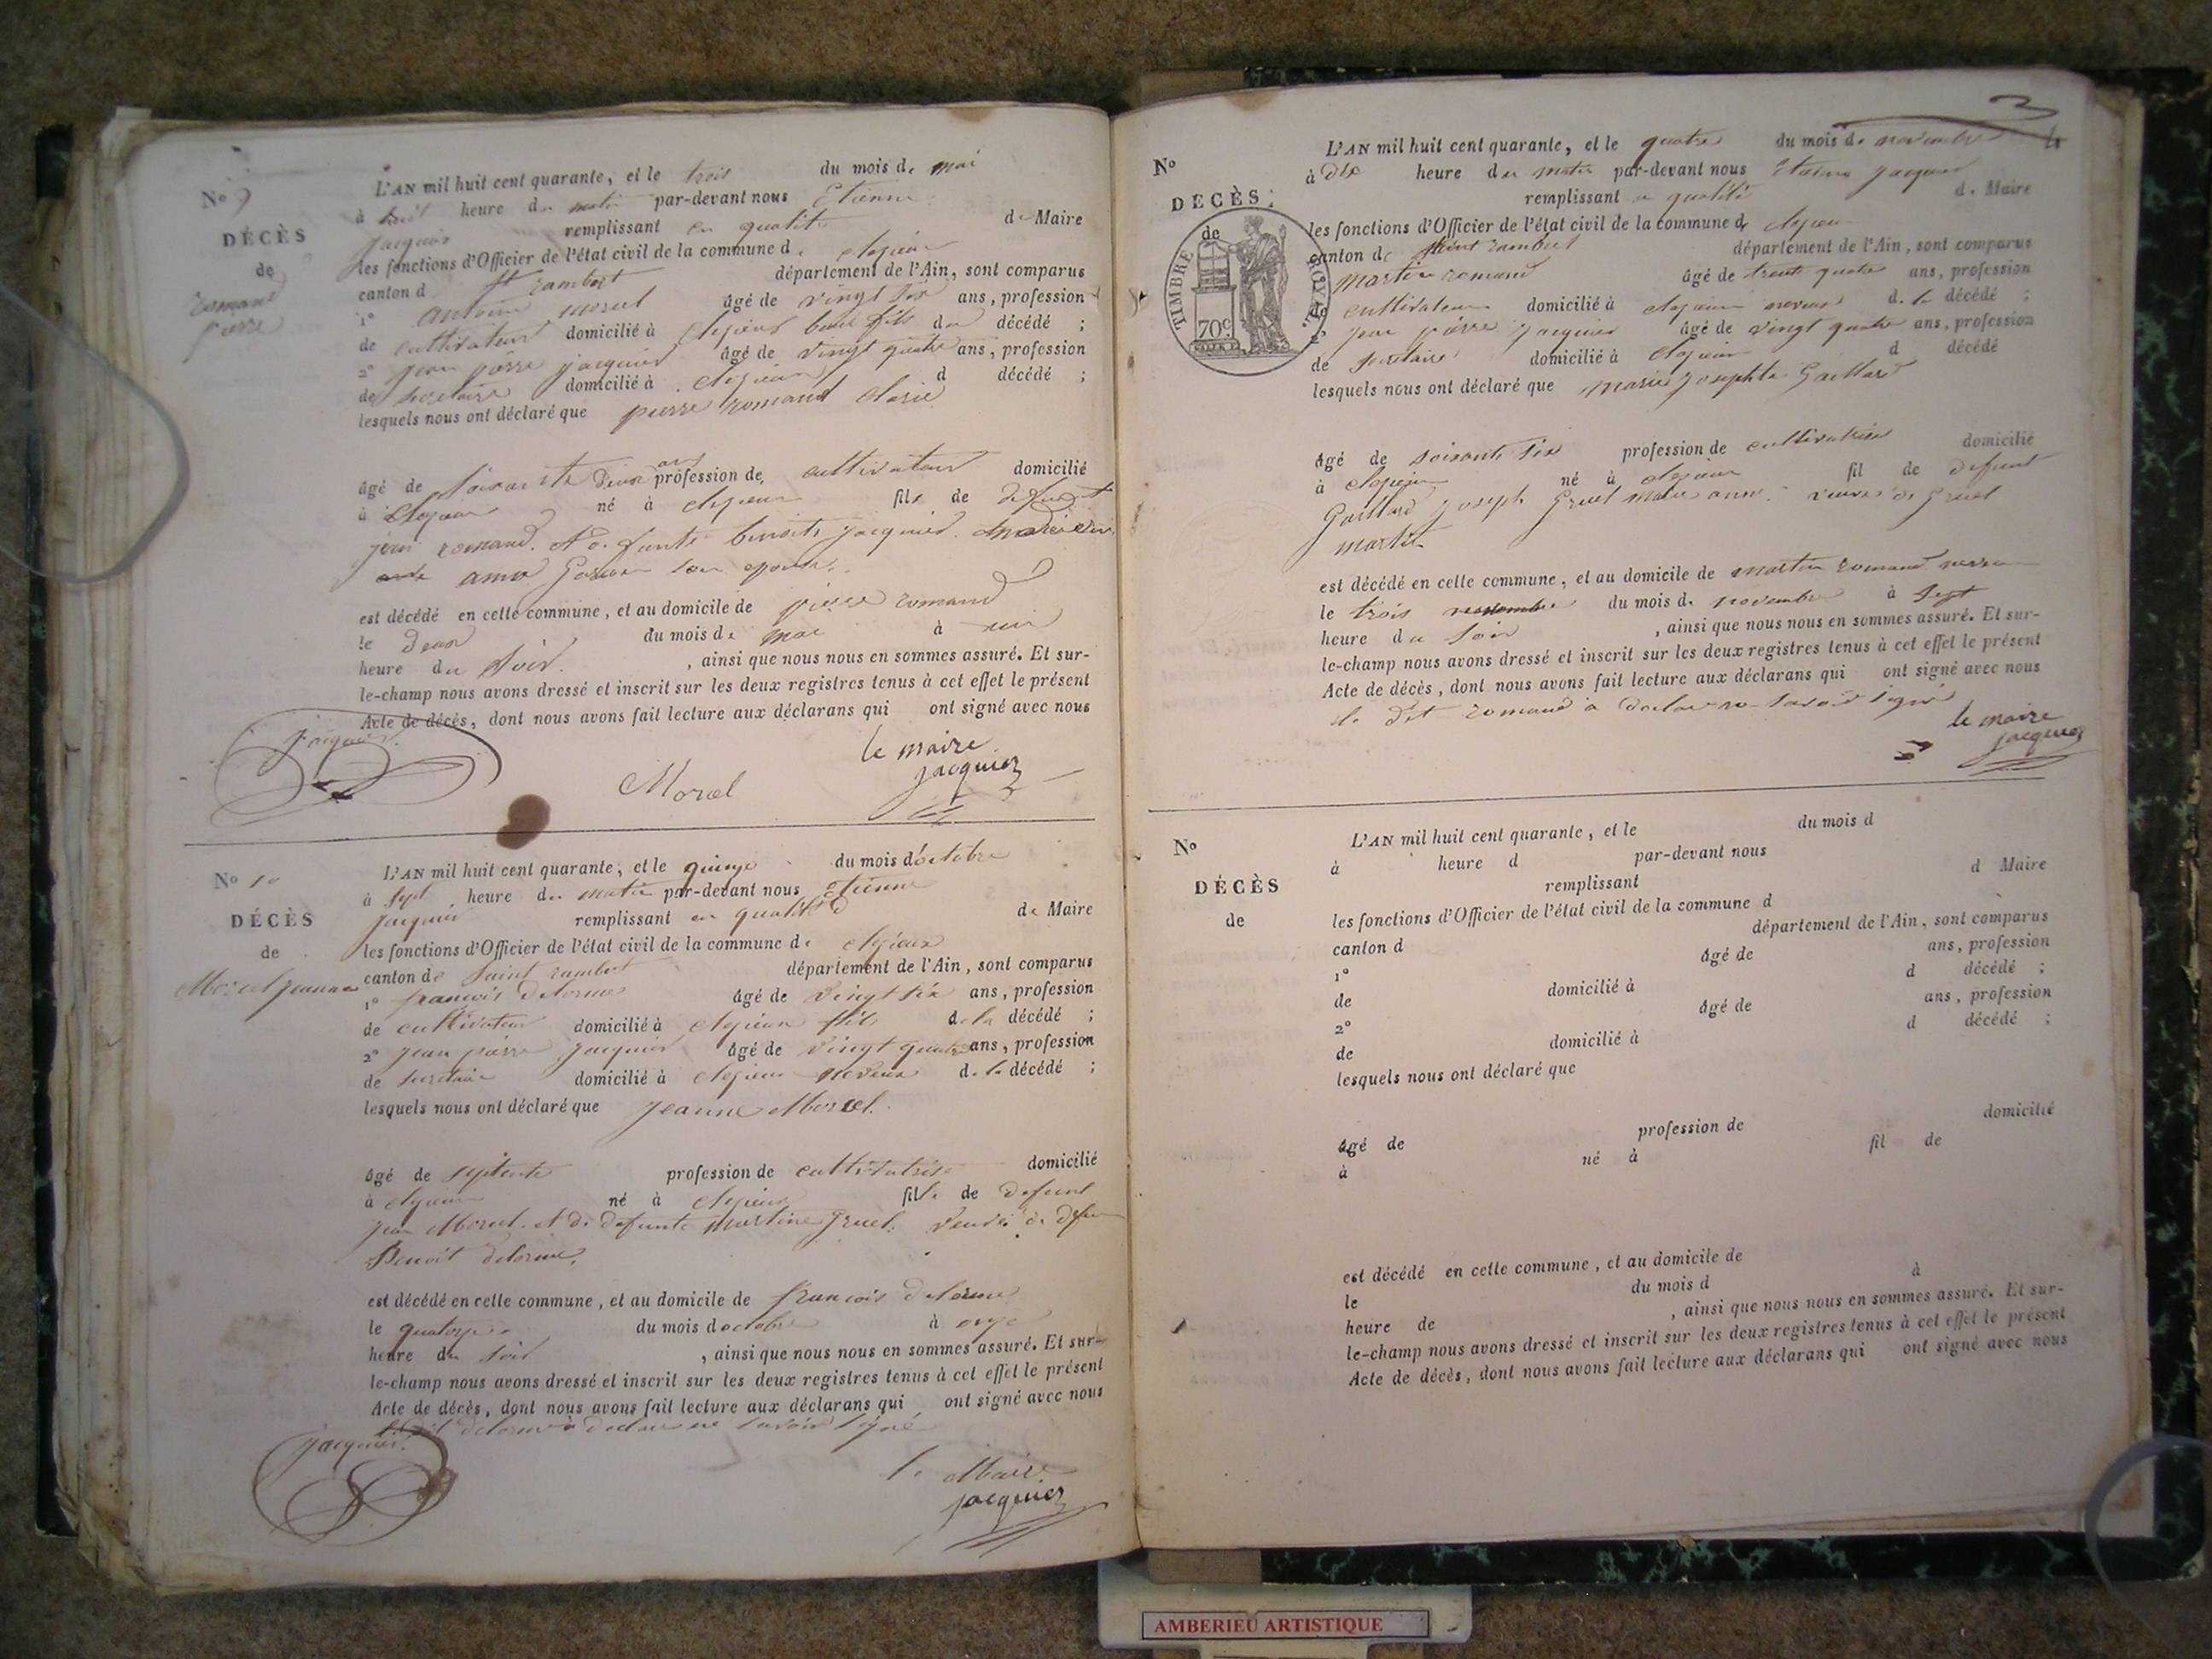 No 9
DÉCÈS
de
romand
pierre
L'AN mil huit cent quarante, et le trois du mois de mai
à huit heure du matin par-devant nous Etienne
jacquier remplissant en qualité de Maire
les fonctions d'Officier de l'état civil de la commune de cleyzieu
canton d St rambert département de l'Ain, sont comparus
1° antoine morel âgé de vingt six ans, profession
de cultivateur domicilié à cleyzieu beau fils du décédé ;
2° jean pierre jacquier âgé de vingt quatre ans, profession
de secretaire domicilié à cleyzieu d décédé ;
lesquels nous ont déclaré que pierre romand
âgé de soixante deux ans profession de cultivateur domicilié
à cleyzieu né à cleyzieu fils de defunt
jean romand et defunte benoite jacquier
son epouse
est décédé en cette commune, et au domicile de pierre romand
le deux du mois de mai à une
heure du soir , ainsi que nous nous en sommes assuré. Et sur-
le-champ nous avons dressé et inscrit sur les deux registres tenus à cet effet le présent
Acte de décès, dont nous avons fait lecture aux déclarans qui ont signé avec nous
jacquier
Morel
le maire
jacquier
No 10
DÉCÈS
de
Morel jeanne
L'AN mil huit cent quarante, et le quinze du mois d'octobre
à sept heure du matin par-devant nous etienne
jacquier remplissant en qualité de Maire
les fonctions d'Officier de l'état civil de la commune de cleyzieu
canton de saint rambert département de l'Ain, sont comparus
1° francois delorme âgé de vingt six ans, profession
de cultivateur domicilié à cleyzieu fils de la décédé ;
2° jean pierre jacquier âgé de vingt quatre ans, profession
de secretaire domicilié à cleyzieu neveux de la décédé ;
lesquels nous ont déclaré que jeanne Morel
âgé de septente profession de cultivatrise domicilié
à cleyzieu né à cleyzieu fille de defunt
jean Morel et de defunte martine gruel veuve de defun
Benoit delorme
est décédé en cette commune, et au domicile de francois delorme
le quatorze du mois d octobre à onze
heure du soir , ainsi que nous nous en sommes assuré. Et sur-
le-champ nous avons dressé et inscrit sur les deux registres tenus à cet effet le présent
Acte de décès, dont nous avons fait lecture aux déclarans qui ont signé avec nous
le dit delorme a declare ne savoir signé
jacquier
le Maire
jacquier
No
DÉCÈS
de
TIMBRE ROYAL
70c
L'AN mil huit cent quarante, et le quatre du mois de novembre
à dix heure du matin par-devant nous etienne jacquier
remplissant en qualité de Maire
les fonctions d'Officier de l'état civil de la commune d cleyzieu
canton de saint rambert département de l'Ain, sont comparus
martin romand âgé de trente quatre ans, profession
de cultivateur domicilié à cleyzieu neveux de la décédé ;
2° jean pierre jacquier âgé de vingt quatre ans, profession
de secretaire domicilié à cleyzieu d décédé
lesquels nous ont déclaré que marie josephte Gaillard
âgé de soixante six profession de cultivatrise domicilié
à cleyzieu né à cleyzieu fil de defunt
Gaillard joseph Gruel marie anne veuve de Gruel
martin
est décédé en cette commune, et au domicile de martin romand
le trois du mois de novembre à sept
heure du soir , ainsi que nous nous en sommes assuré. Et sur-
le-champ nous avons dressé et inscrit sur les deux registres tenus à cet effet le présent
Acte de décès, dont nous avons fait lecture aux déclarans qui ont signé avec nous
le dit romand a declare ne savoir signé
le maire
jacquier
No
DÉCÈS
de
L'AN mil huit cent quarante, et le du mois d
à heure d par-devant nous
remplissant d Maire
les fonctions d'Officier de l'état civil de la commune d
canton d département de l'Ain, sont comparus
1° âgé de ans, profession
de domicilié à d décédé ;
2° âgé de ans, profession
de domicilié à d décédé ;
lesquels nous ont déclaré que
âgé de profession de domicilié
à né à fil de
est décédé en cette commune, et au domicile de
le du mois d à
heure de , ainsi que nous nous en sommes assuré. Et sur-
le-champ nous avons dressé et inscrit sur les deux registres tenus à cet effet le présent
Acte de décès, dont nous avons fait lecture aux déclarans qui ont signé avec nous
AMBERIEU ARTISTIQUE